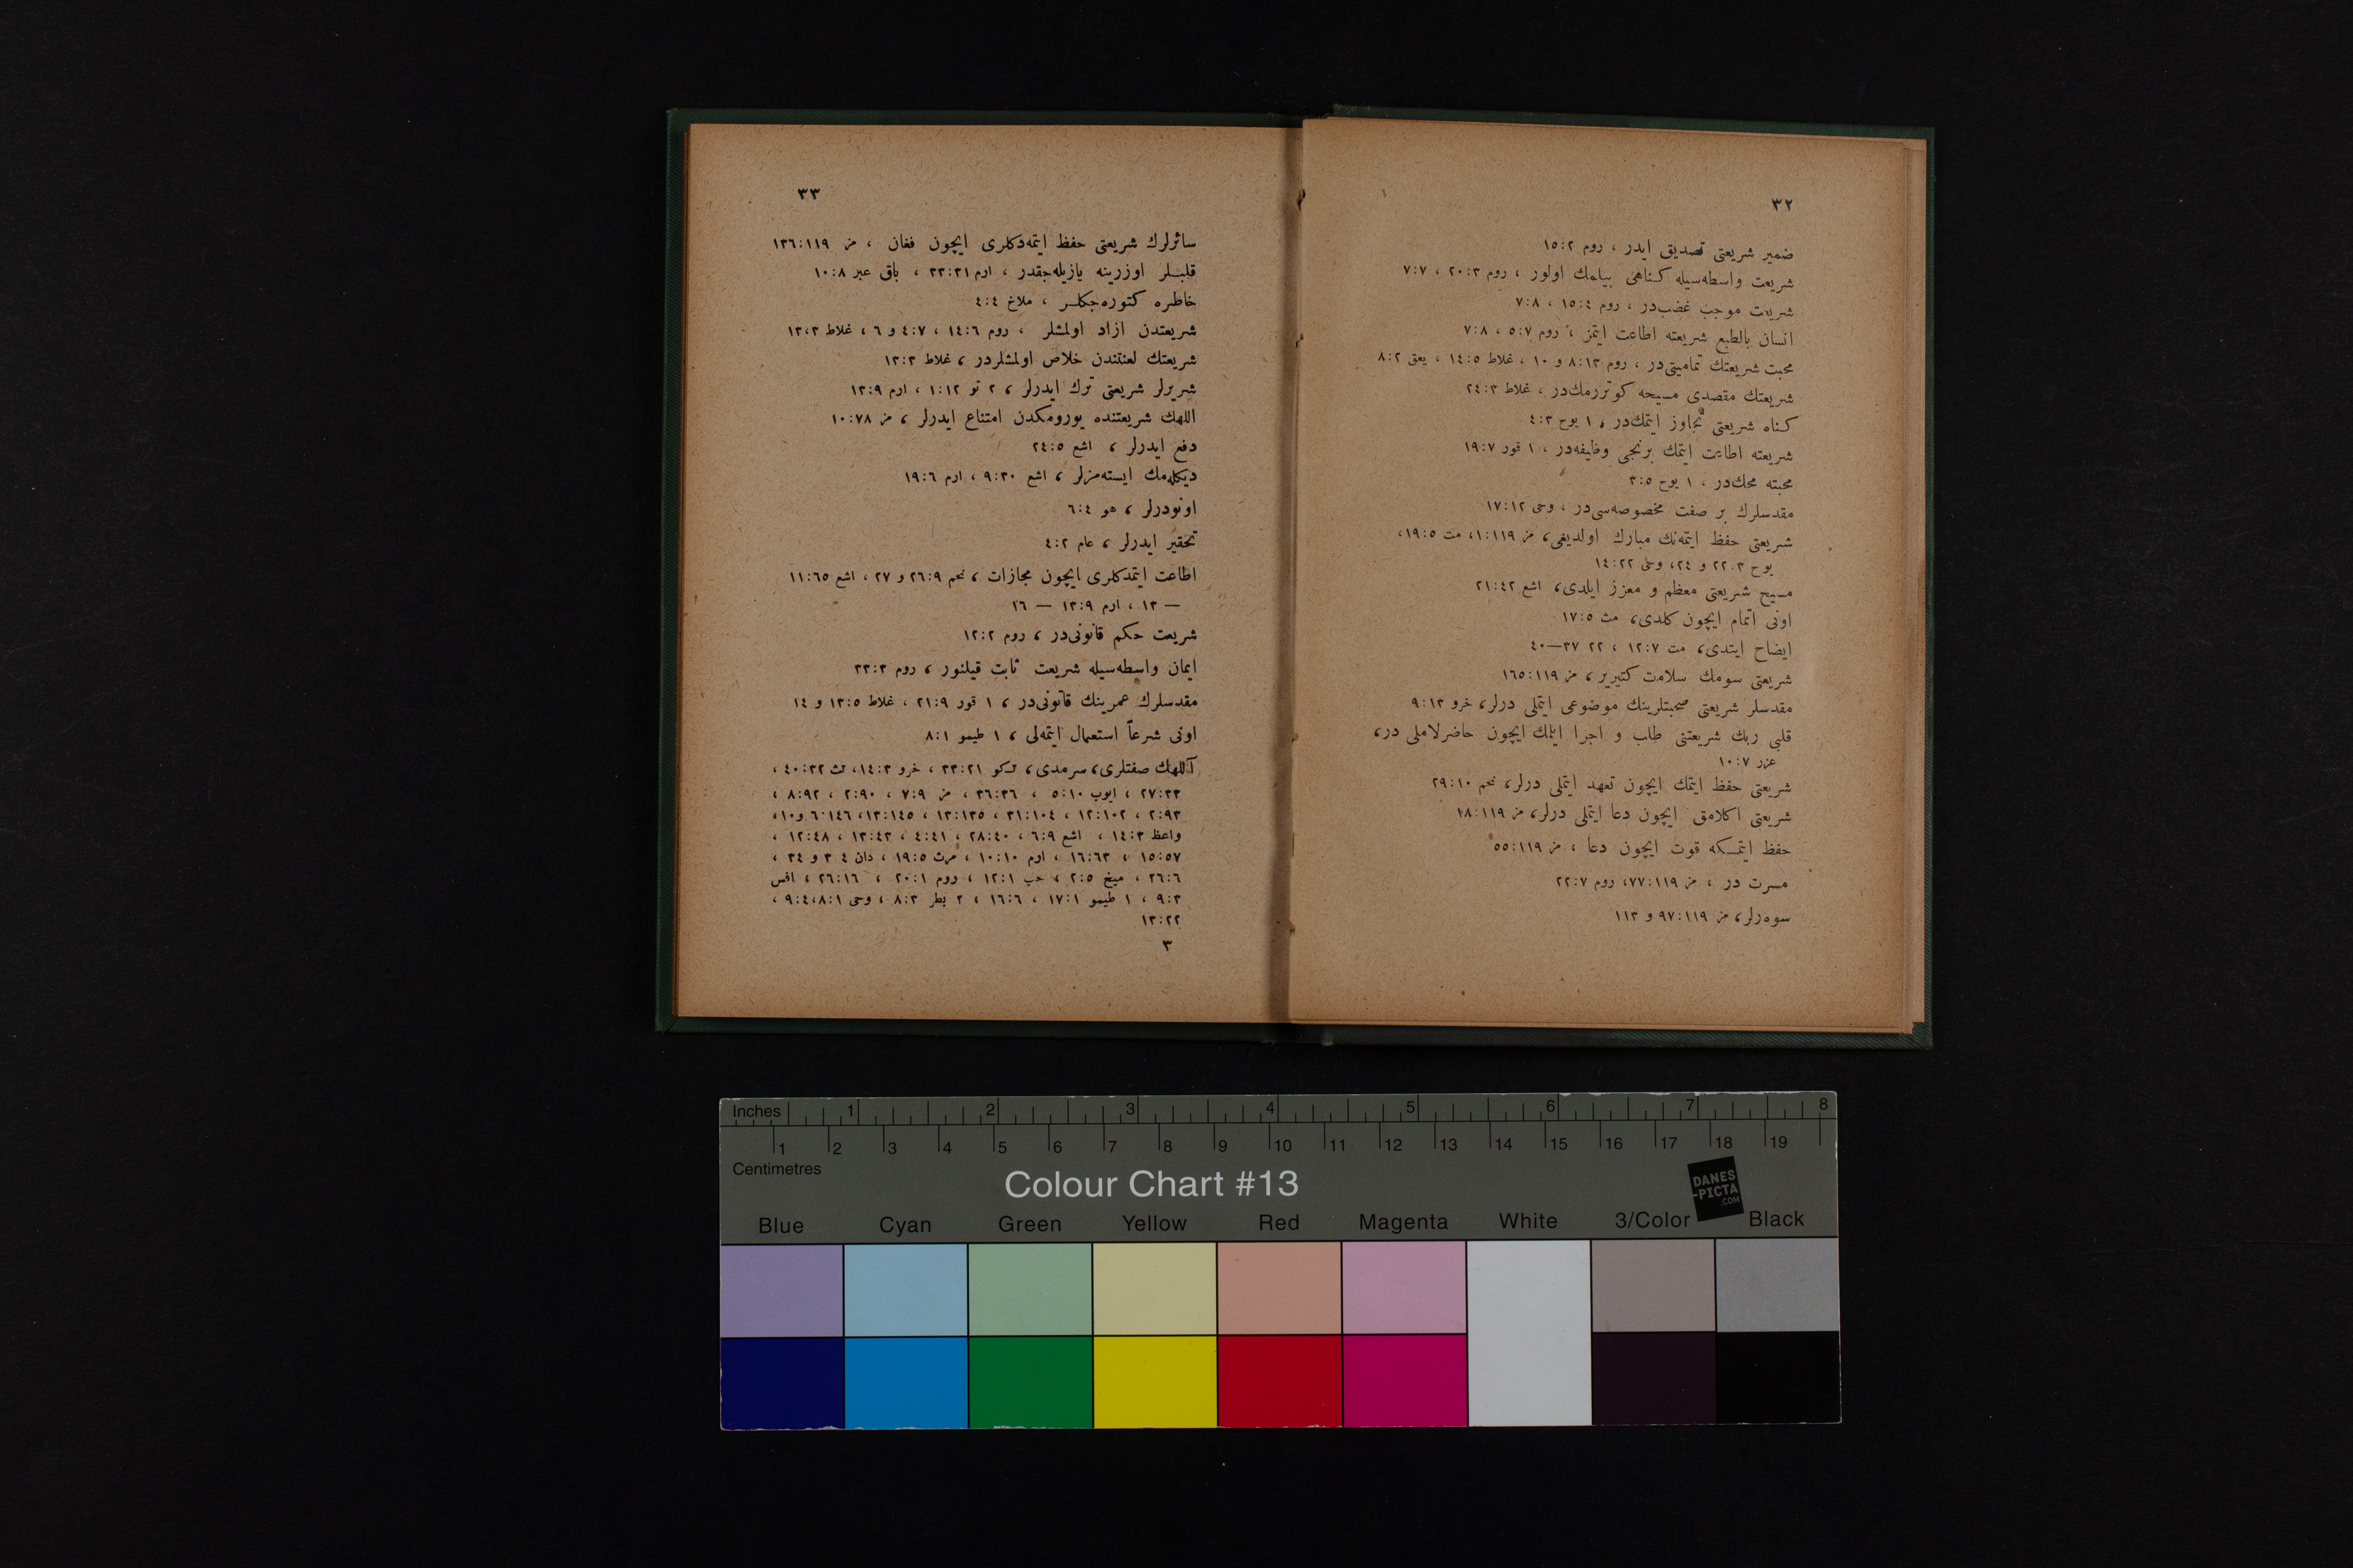 ٣٢
ضمير شريعتى تصديق ايدر ، روم ٢:١٥
شريعت واسطه‌سيله كناهى بيلمك اولور ، روم ٣:٢٠ ، ٧:٧
شريعت موجب غضب‌در ، روم ٤:١٥ ، ٨:٧
انسان بالطبع شريعته اطاعت ايتمز ، روم ٧:٥ ، ٨:٧
محبت شريعتك تماميتى‌در ، روم ١٣:٨ و ١٠ ، غلاط ٥:١٤ ، يعق ٢:٨
شريعتك مقصدى مسيحه كوتررمك‌در ، غلاط ٣:٢٤
كناه شريعتى تجاوز ايتمك‌در ، ١ يوح ٣:٤
شريعته اطاعت ايتمك برنجى وظيفه‌در ، ١ قور ٧:١٩
محبته محك‌در ، ١ يوح ٥:٣
مقدسلرك بر صفت مخصوصه‌سى‌در ، وحى ١٢:١٧
شريعتى حفظ ايتمه‌نك مبارك اولديغى، مز ١١٩:١، مت ٥:١٩،
يوح ٣:٢٢ و ٢٤، وحى ٢٢:١٤
مسيح شريعتى معظم و معزز ايلدى، اشع ٤٢:٢١
اونى اتمام ايچون كلدى، مت ٥:١٧
ايضاح ايتدى، مت ٧:١٢ ، ٢٢ ٣٧—٤٠
شريعتى سومك سلامت كتيرير، مز ١١٩:١٦٥
مقدسلر شريعتى صحبتلرينك موضوعى ايتملى درلر، خرو ١٣:٩
قلبى ربك شريعتنى طلب و اجرا ايلمك ايچون حاضرلاملى در،
عزر ٧:١٠
شريعتى حفظ ايتمك ايچون تعهد ايتملى درلر، نحم ١٠:٢٩
شريعتى اكلامق ايچون دعا ايتملى درلر، مز ١١٩:١٨
حفظ ايتمكه قوت ايچون دعا ، مز ١١٩:٥٥
مسرت در ، مز ١١٩:٧٧، روم ٧:٢٢
سوه‌رلر، مز ١١٩:٩٧ و ١١٣
٣٣
سائرلرك شريعتى حفظ ايتمه‌دكلرى ايچون فغان ، مز ١١٩:١٣٦
قلبلر اوزرينه يازيله‌جقدر ، ارم ٣١:٣٣ ، باق عبر ٨:١٠
خاطره كتوره‌جكلر ، ملاخ ٤:٤
شريعتدن ازاد اولمشلر ، روم ٦:١٤ ، ٧:٤ و ٦ ، غلاط ٣،١٣
شريعتك لعنتندن خلاص اولمشلردر ، غلاط ٣:١٣
شريرلر شريعتى ترك ايدرلر ، ٢ تو ١٢:١ ، ارم ٩:١٣
اللهك شريعتنده يورومكدن امتناع ايدرلر ، مز ٧٨:١٠
دفع ايدرلر ، اشع ٥:٢٤
ديكله‌مك ايسته‌مزلر ، اشع ٣٠:٩ ، ارم ٦:١٩
اونودرلر ، هو ٤:٦
تحقير ايدرلر ، عام ٢:٤
اطاعت ايتمدكلرى ايچون مجازات ، نحم ٩:٢٦ و ٢٧ ، اشع ٦٥:١١
— ١٣ ، ارم ٩:١٣ — ١٦
شريعت حكم قانونى‌در ، روم ٢:١٢
ايمان واسطه‌سيله شريعت ثابت قيلنور ، روم ٣:٣٣
مقدسلرك عمرينك قانونى‌در ، ١ قور ٩:٢١ ، غلاط ٥:١٣ و ١٤
اونى شرعاً استعمال ايتمه‌لى ، ١ طيمو ١:٨
اللهك صفتلرى، سرمدى، تكو ٢١:٣٣ ، خرو ٣:١٤، تث ٣٢:٤٠ ،
٣٣:٢٧ ، ايوب ١٠:٥ ، ٣٦:٢٦ ، مز ٩:٧ ، ٩٠:٢ ، ٩٢:٨ ،
٩٣:٢ ، ١٠٢:١٢ ، ١٠٤:٣١ ، ١٣٥:١٣ ، ١٤٥:١٣، ١٤٦:٦ و١٠،
واعظ ٣:١٤ ، اشع ٩:٦ ، ٤٠:٢٨ ، ٤١:٤ ، ٤٣:١٣ ، ٤٨:١٢ ،
٥٧:١٥ ، ٦٣:١٦ ، ارم ١٠:١٠ ، مرث ٥:١٩ ، دان ٤ ٣ و ٣٤ ،
٦:٢٦ ، ميخ ٥:٢ ، حب ١:١٢ ، روم ١:٢٠ ، ١٦:٢٦ ، افس
٣:٩ ، ١ طيمو ١:١٧ ، ٦:١٦ ، ٢ بطر ٣:٨ ، وحى ١:٨،٤:٩ ،
٢٢:١٣
٣
Inches 1 2 3 4 5 6 7 8
1 2 3 4 5 6 7 8 9 10 11 12 13 14 15 16 17 18 19
Centimetres
Colour Chart #13
DANES
-PICTA
.COM
Blue Cyan Green Yellow Red Magenta White 3/Color Black